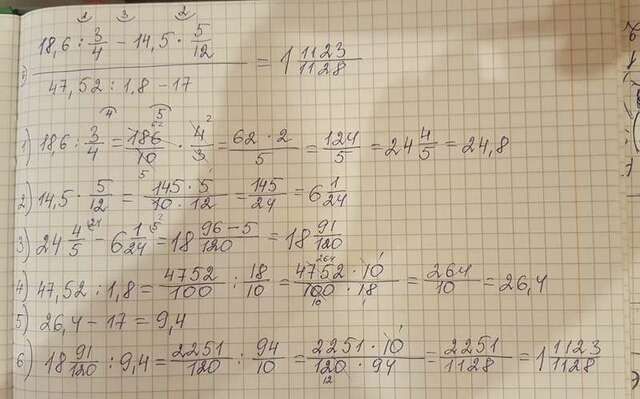 18,6 : 3/4 − 14,5 · 5/12
47,52 : 1,8 − 17 = 1 1123/1128
1) 18,6 : 3/4 = 186/10 · 4/3 = 62 · 2/5 = 124/5 = 24 4/5 = 24,8
2) 14,5 · 5/12 = 145 · 5/10 · 12 = 145/24 = 6 1/24
3) 24 4/5 − 6 1/24 = 18 96−5/120 = 18 91/120
4) 47,52 : 1,8 = 4752/100 : 18/10 = 4752 · 10/100 · 18 = 264/10 = 26,4
5) 26,4 − 17 = 9,4
6) 18 91/120 : 9,4 = 2251/120 : 94/10 = 2251 · 10/120 · 94 = 2251/1128 = 1 1123/1128